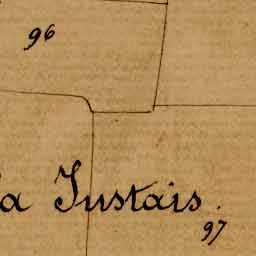 96
la Justais.
97